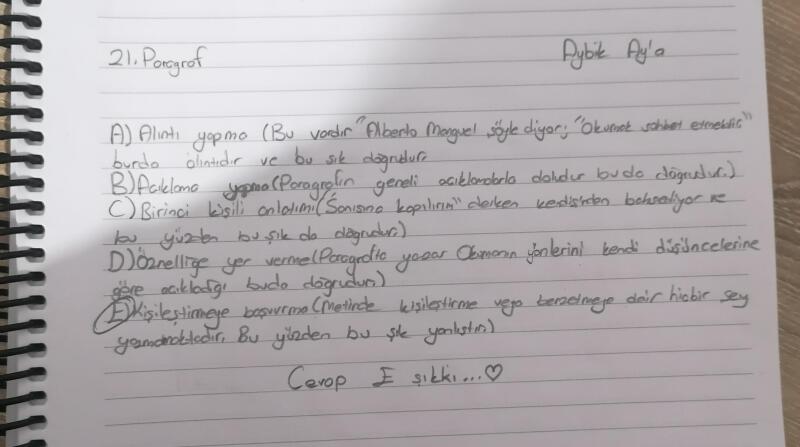 21. Paragraf
Aybik Ay'a
A) Alıntı yapma (Bu vardır "Alberto Manguel şöyle diyor; "Okumak sohbet etmektir"
burda alıntıdır ve bu şık doğrudur.
B) Açıklama yapma (Paragrafın geneli açıklamalarla doludur bu da doğrudur.)
C) Birinci kişili anlatım (Sanısına kapılırım" derken kendisinden bahsediyor ve
bu yüzden bu şık da doğrudur.)
D) Öznelliğe yer verme (Paragrafta yazar Okumanın yönlerini kendi düşüncelerine
göre açıkladığı buda doğrudur.)
E) Kişileştirmeye başvurma (Metinde kişileştirme veya benzetmeye dair hiçbir şey
yazmamaktadır. Bu yüzden bu şık yanlıştır.)
Cevap E şıkkı...♡